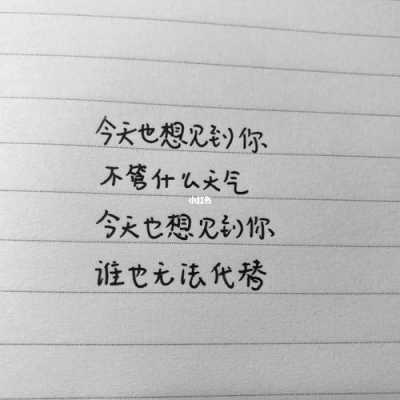 今天也想见到你
不管什么天气
小红书
今天也想见到你
谁也无法代替